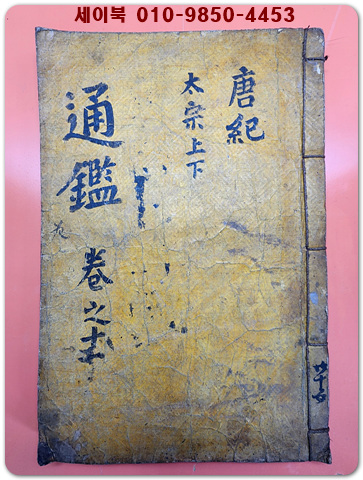 세이북 010-9850-4453
唐紀
太宗上下
通鑑
卷之